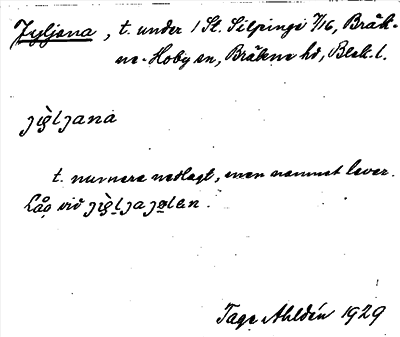 Jyljena, t. under 1 St. Silpinge 7/16, Bräk-
ne-Hoby sn, Bräkne hd, Blek. l.
t. numera nedlagt, men namnet lever.
Låg vid
Tage Ahldén 1929